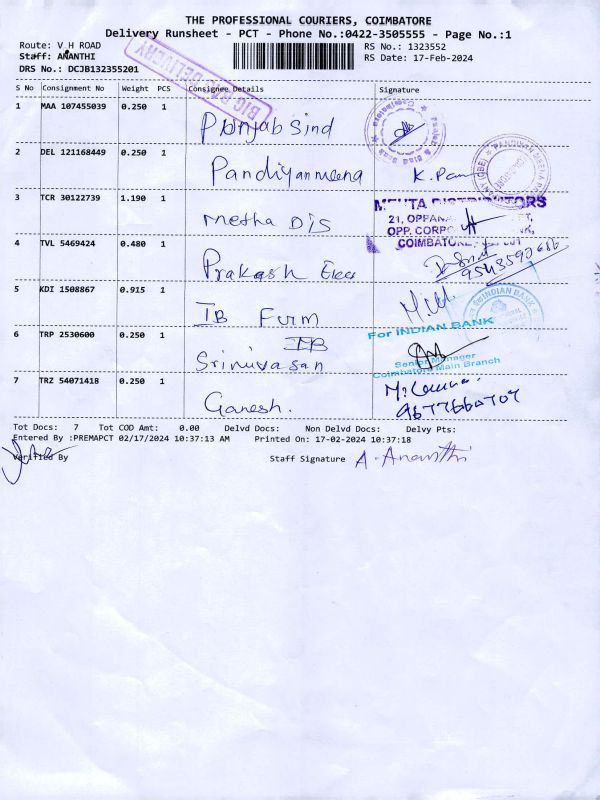 THE PROFESSIONAL COURIERS, COIMBATORE
Delivery Runsheet - PCT - Phone No.:0422-3505555 - Page No.:1
Route: V H ROAD
Staff: ANANTHI
DRS No.: DCJB132355201
RS No.: 1323552
RS Date: 17-Feb-2024
BIG BUY DELIVERY
S No Consignment No Weight PCS Consignee Details Signature
1 MAA 107455039 0.250 1 Punjab Sind
2 DEL 121168449 0.250 1 Pandiyan meena K.
3 TCR 30122739 1.190 1 metha Dis
MEHTA DISTRIBUTORS
21, OPPANA
OPP. CORPO
COIMBATORE
4 TVL 5469424 0.480 1 Prakash Elec
5 KDI 1508867 0.915 1 IB Furm
For INDIAN BANK
6 TRP 2530600 0.250 1 Srinivasan IB
Senior Manager
Coimbatore Main Branch
7 TRZ 54071418 0.250 1 Ganesh.
Tot Docs: 7 Tot COD Amt: 0.00 Delvd Docs: Non Delvd Docs: Delvy Pts:
Entered By :PREMAPCT 02/17/2024 10:37:13 AM Printed On: 17-02-2024 10:37:18
Verified By Staff Signature A. Ananthi